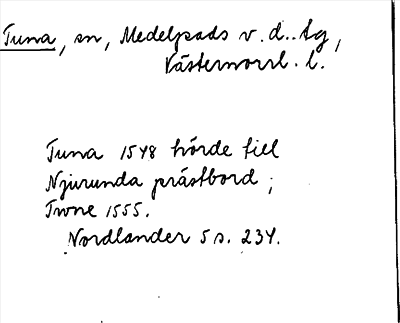 Tuna, sn, Medelpads v. d.. tg,
Västernorrl. l.
Tuna 1548 hörde till
Njurunda prästbord;
Twne 1555.
Nordlander 5 s. 234.